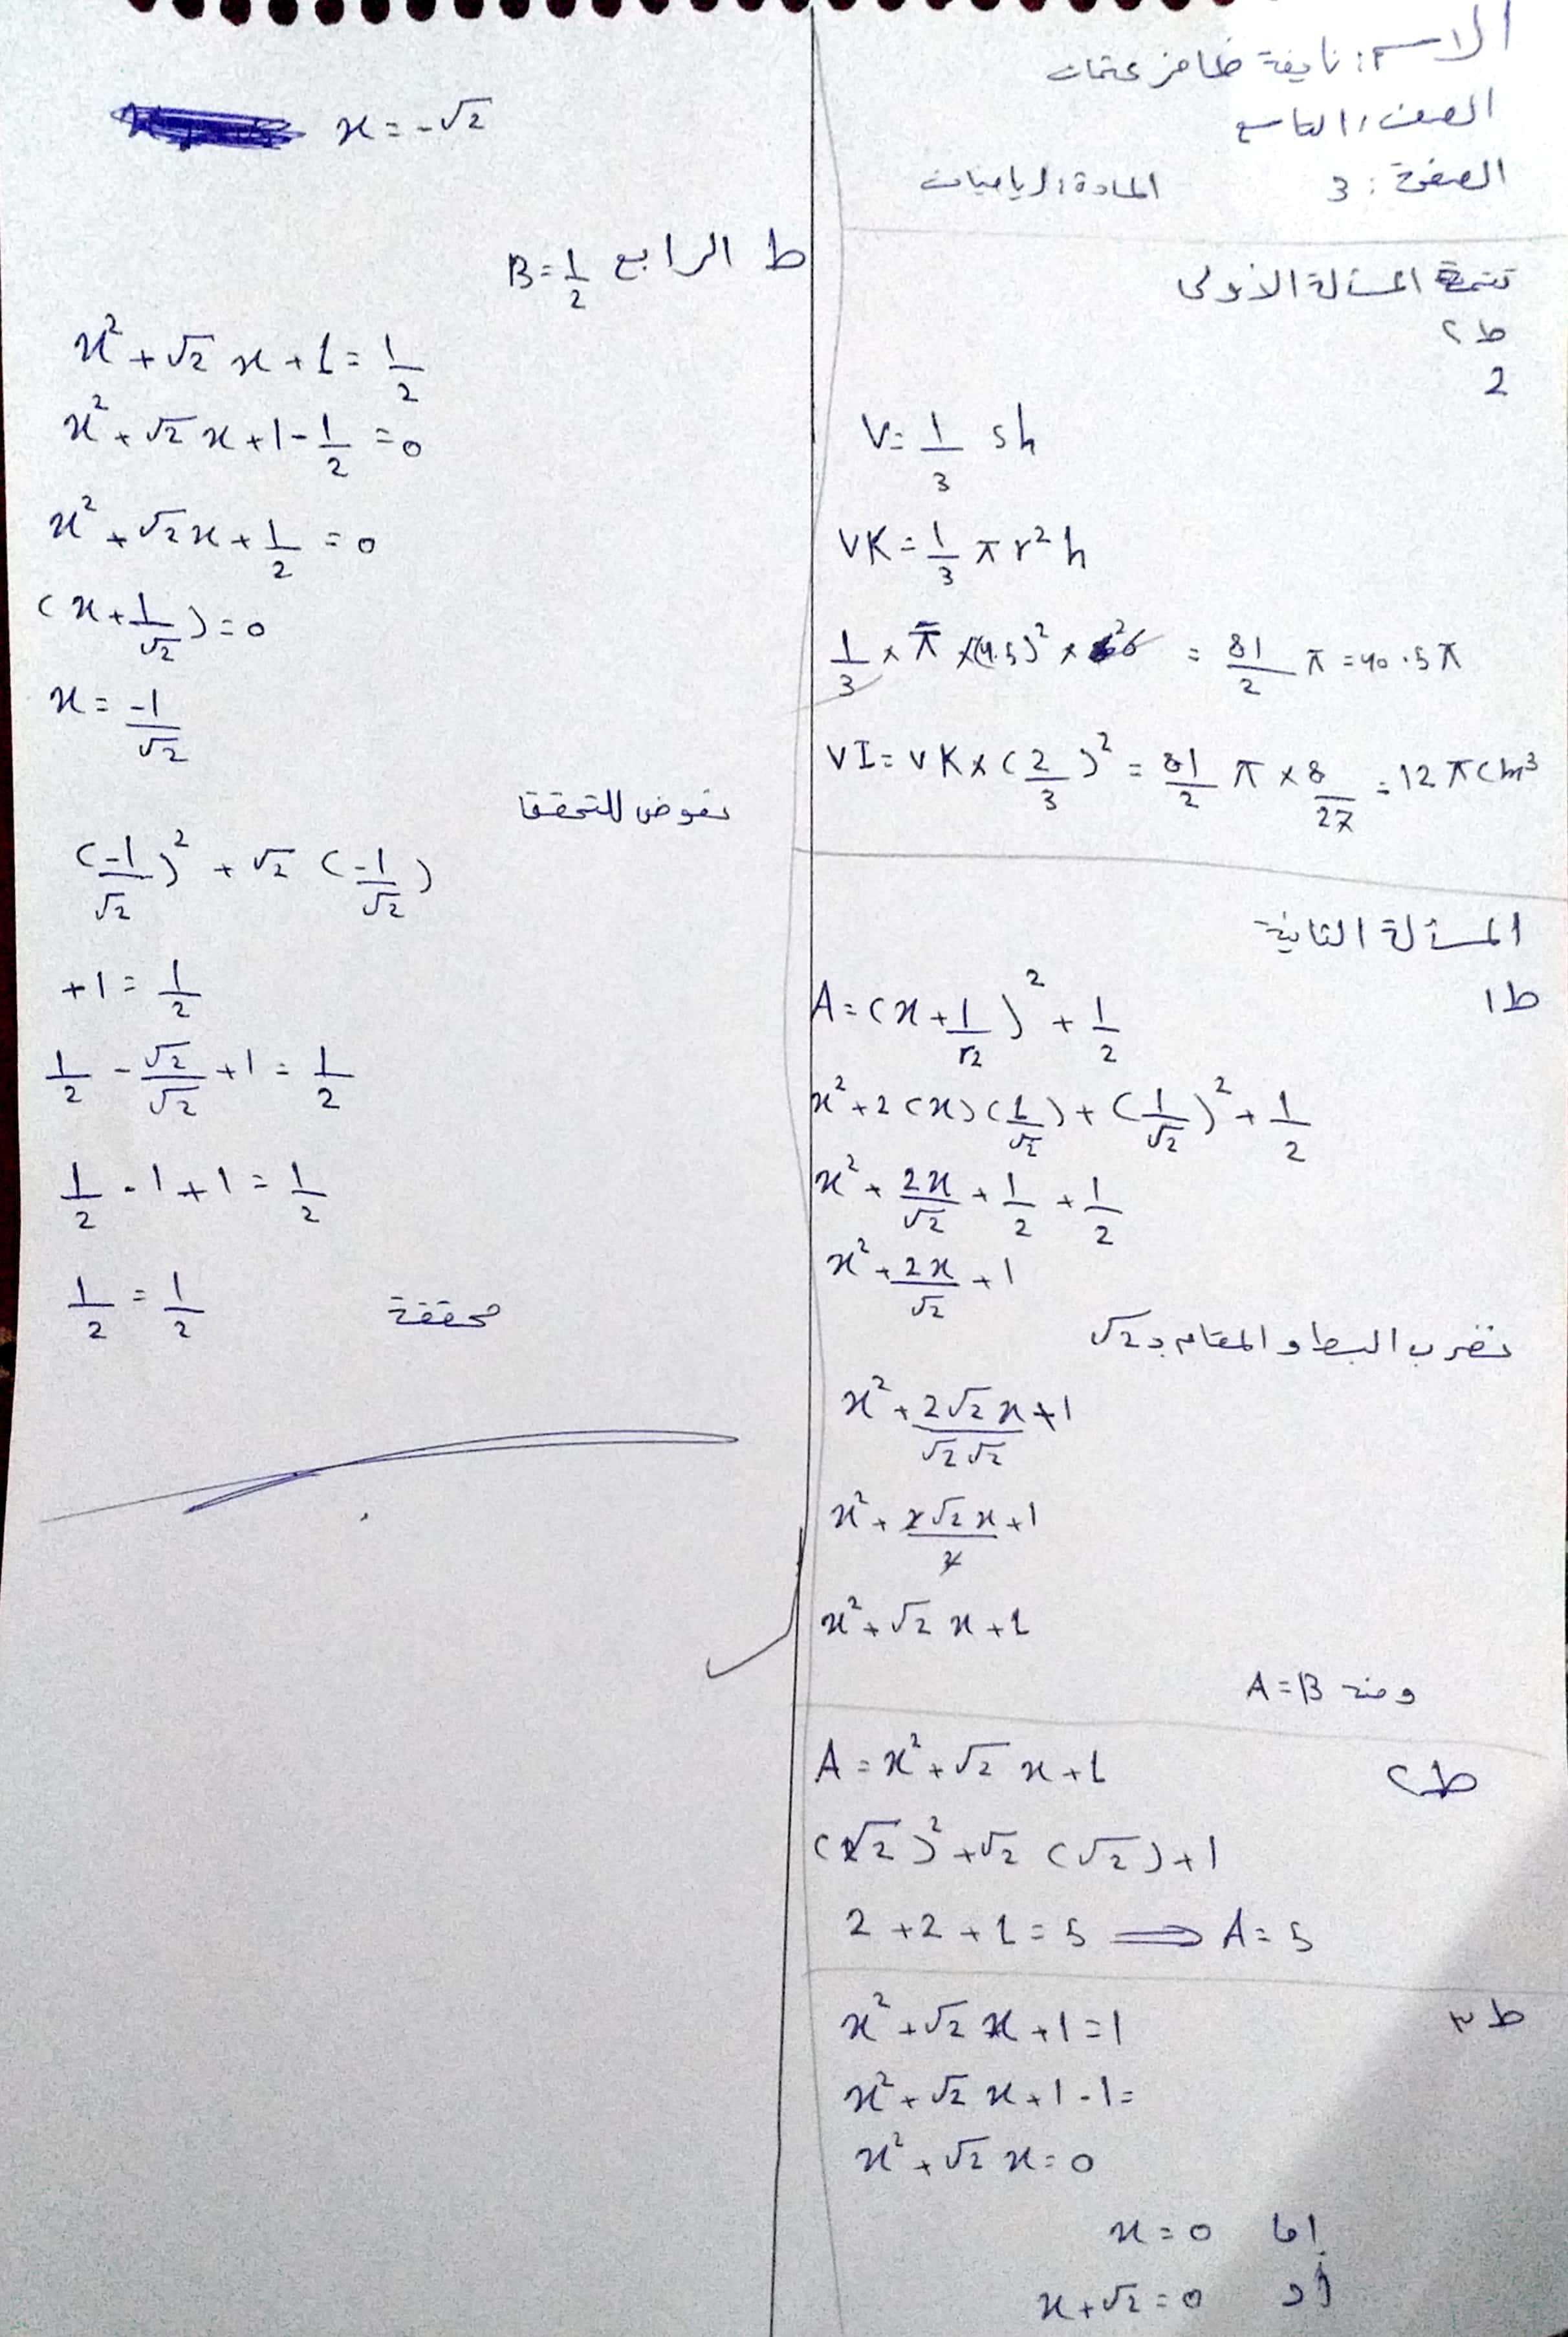 الاسم: نايفة ظافر عتمات
الصف: التاسع
الصفحة: 3 المادة: رياضيات
تتمة المسألة الأولى
ط٢
2
V = 1/3 sh
VK = 1/3 π r² h
1/3 × π × (4.5)² × 6 = 81/2 π = 40.5π
VI = VK × (2/3)² = 81/2 π × 8/27 = 12πcm³
المسألة الثانية
ط١
A = (x + 1/√2)² + 1/2
x² + 2(x)(1/√2) + (1/√2)² + 1/2
x² + 2x/√2 + 1/2 + 1/2
x² + 2x/√2 + 1
نضرب البسط والمقام بـ √2
x² + 2√2 x/√2 √2 + 1
x² + 2√2 x/2 + 1
x² + √2 x + 1
ومنه A = B
ط٢
A = x² + √2 x + 1
(√2)² + √2 (√2) + 1
2 + 2 + 1 = 5 ⟹ A = 5
ط٣
x² + √2 x + 1 = 1
x² + √2 x + 1 - 1 =
x² + √2 x = 0
إما x = 0
أو x + √2 = 0
x = -√2
ط الرابع B = 1/2
x² + √2 x + 1 = 1/2
x² + √2 x + 1 - 1/2 = 0
x² + √2 x + 1/2 = 0
(x + 1/√2) = 0
x = -1/√2
نعوض للتحقق
(-1/√2)² + √2 (-1/√2)
+1 = 1/2
1/2 - √2/√2 + 1 = 1/2
1/2 - 1 + 1 = 1/2
1/2 = 1/2 محققة